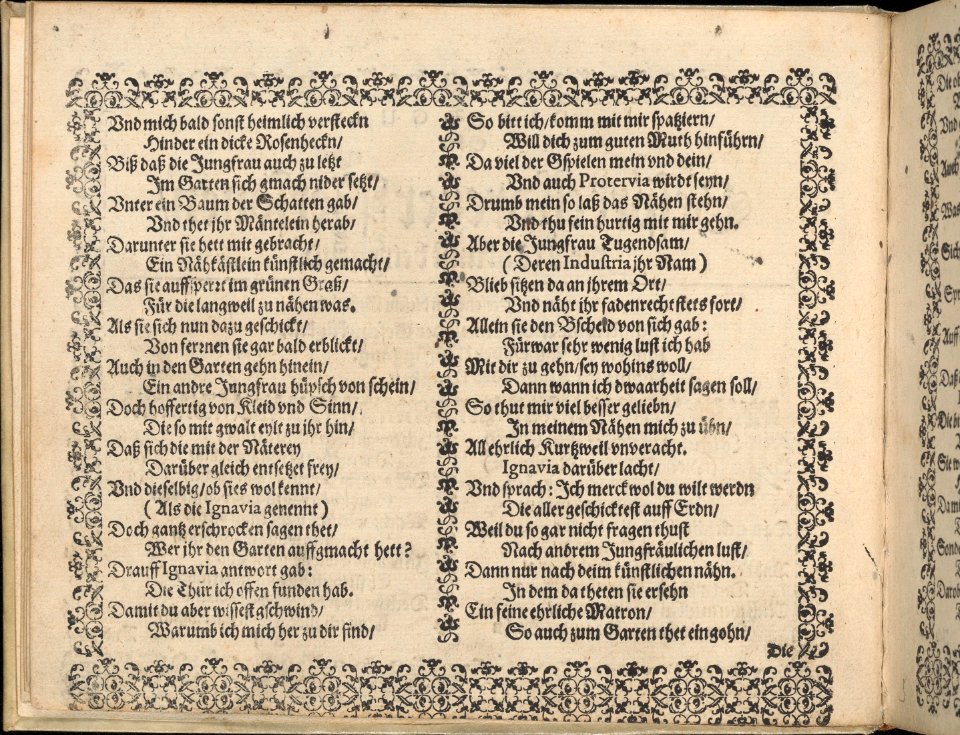 Vnd mich bald sonst heimlich versteckn
Hinder ein dicke Rosenheckn/
Biß daß die Jungfrau auch zu letzt
Im Garten sich gmach nider setzt/
Vnter ein Baum der Schatten gab/
Vnd thet jhr Mäntelein herab/
Darunter sie hett mit gebracht/
Ein Nähkästlein künstlich gemacht/
Das sie auffsperzt im grünen Graß/
Für die langweil zu nähen was.
Als sie sich nun dazu geschickt/
Von ferznen sie gar bald erblickt/
Auch in den Garten gehn hinein/
Ein andre Jungfrau hüpsch von schein/
Doch hoffertig von Kleid vnd Sinn/
Die so mit gwalt eylt zu jhr hin/
Daß sich die mit der Näterey
Darüber gleich entsetzet frey/
Vnd dieselbig/ob sies wol kennt/
( Als die Ignavia genennt )
Doch gantz erschrocken sagen thet/
Wer jhr den Garten auffgmacht hett?
Drauff Ignavia antwort gab:
Die Thür ich offen funden hab.
Damit du aber wissest gschwind/
Warumb ich mich her zu dir find/
So bitt ich/komm mit mir spatziern/
Will dich zum guten Muth hinführn/
Da viel der Gspielen mein vnd dein/
Vnd auch Protervia wirdt seyn/
Drumb mein so laß das Nähen stehn/
Vnd thu fein hurtig mit mir gehn.
Aber die Jungfrau Tugendsam/
( Deren Industria jhr Nam )
Blieb sitzen da an jhrem Ort/
Vnd näht jhr fadenrecht stets fort/
Allein sie den Bscheid von sich gab:
Fürwar sehr wenig lust ich hab
Mit dir zu gehn/sey wohins woll/
Dann wann ich dwaarheit sagen soll/
So thut mir viel besser geliebn/
In meinem Nähen mich zu übn/
All ehrlich Kurtzweil vnveracht.
Ignavia darüber lacht/
Vnd sprach: Ich merck wol du wilt werdn
Die aller geschicktest auff Erdn/
Weil du so gar nicht fragen thust
Nach andrem Jungfräulichen lust/
Dann nur nach deim künstlichen nähn.
In dem da theten sie ersehn
Ein feine ehrliche Matron/
So auch zum Garten thet eingohn/
Die